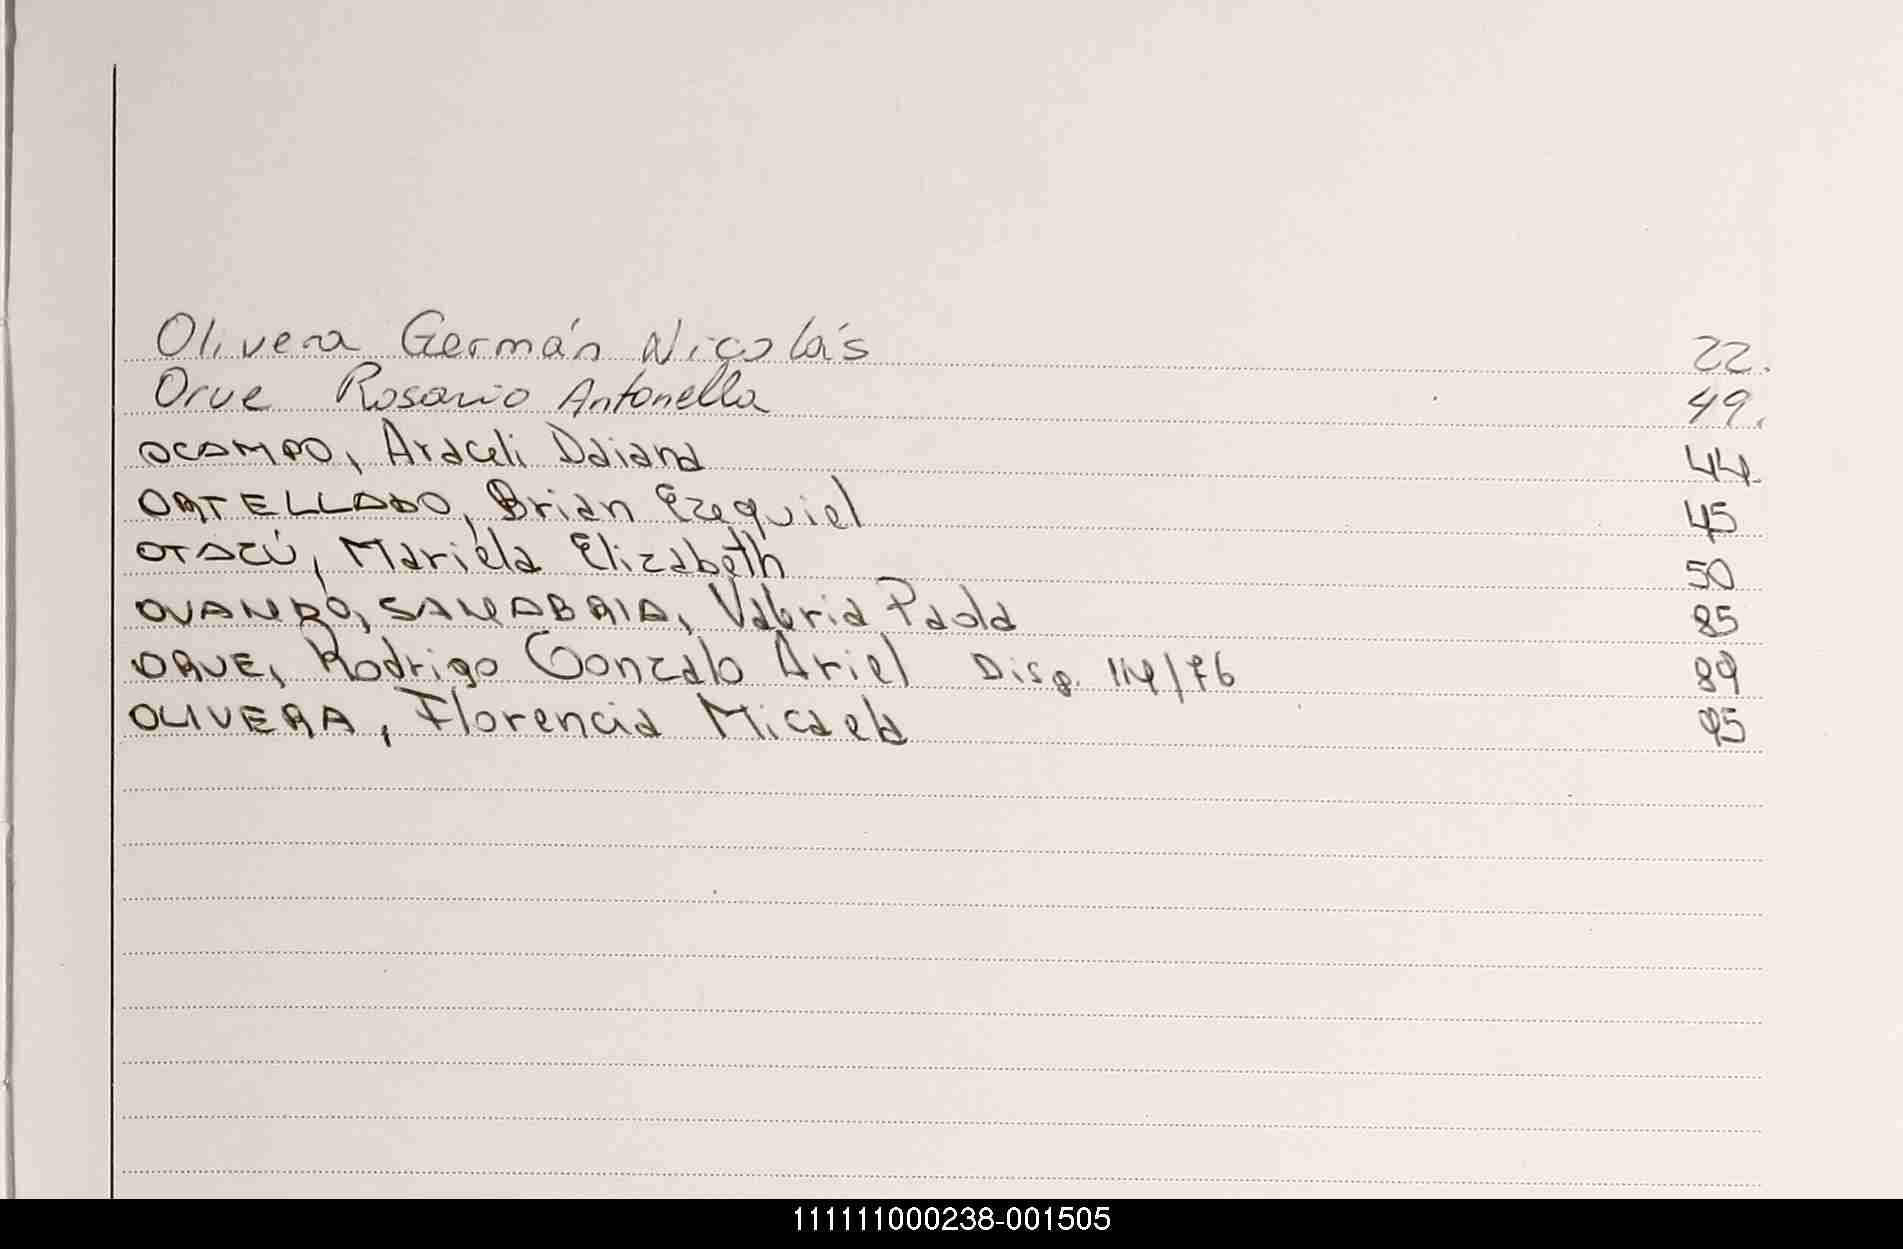 Olivera Germán Nicolás 22.
Orue Rosario Antonella 49.
OCAMPO, Araceli Daiana 44
ORTELLADO, Brian Ezequiel 45
OTAZÚ, Mariela Elizabeth 50
OVANDO, SANABRIA, Valeria Paola 85
ORUE, Rodrigo Gonzalo Ariel Disp. 114/76 89
OLIVERA, Florencia Micaela 95
111111000238-001505